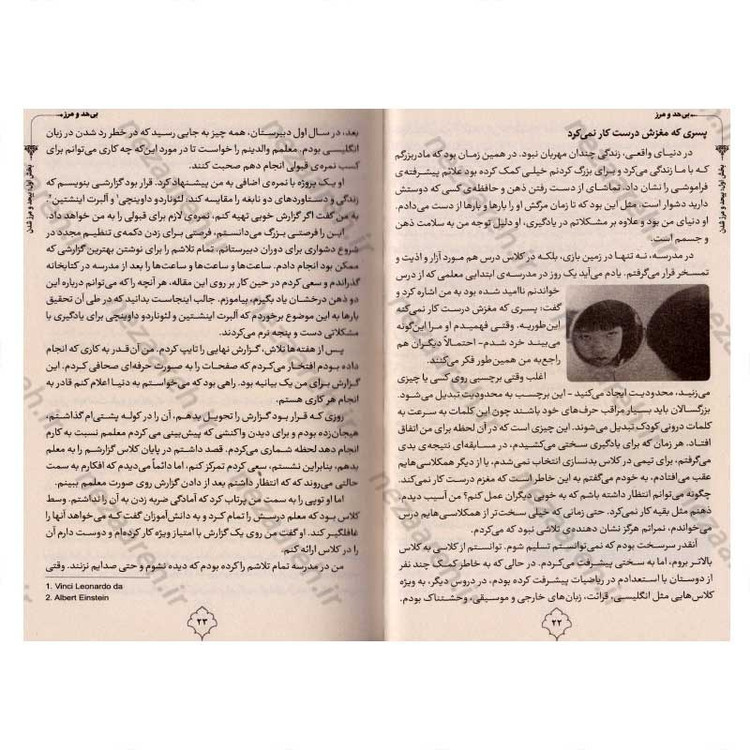 بی‌حد و مرز
بخش اول: بیحد و مرز شدن
پسری که مغزش درست کار نمی‌کرد
در دنیای واقعی، زندگی چندان مهربان نبود. در همین زمان بود که مادربزرگم
که با ما زندگی می‌کرد و برای بزرگ کردنم خیلی کمک کرده بود علائم پیشرفته‌ی
فراموشی را نشان داد. تماشای از دست رفتن ذهن و حافظه‌ی کسی که دوستش
دارید دشوار است، مثل این بود که تا زمان مرگش او را بارها و بارها از دست می‌دادم.
او دنیای من بود و علاوه بر مشکلاتم در یادگیری، او دلیل توجه من به سلامت ذهن
و جسمم است.
در مدرسه، نه تنها در زمین بازی، بلکه در کلاس درس هم مورد آزار و اذیت و
تمسخر قرار می‌گرفتم. یادم می‌آید یک روز در مدرسه‌ی ابتدایی معلمی که از درس
خواندنم ناامید شده بود به من اشاره کرد و
گفت: پسری که مغزش درست کار نمی‌کنه
این‌طوریه. وقتی فهمیدم او مرا این‌گونه
می‌بیند خرد شدم- احتمالاً دیگران هم
راجع‌به من همین‌طور فکر می‌کنند.
اغلب وقتی برچسبی روی کسی یا چیزی
می‌زنید، محدودیت ایجاد می‌کنید - این برچسب به محدودیت تبدیل می‌شود.
بزرگسالان باید بسیار مراقب حرف‌های خود باشند چون این کلمات به سرعت به
کلمات درونی کودک تبدیل می‌شوند. این چیزی است که در آن لحظه برای من اتفاق
افتاد. هر زمان که برای یادگیری سختی می‌کشیدم، در مسابقه‌ای نتیجه‌ی بدی
می‌گرفتم، برای تیمی در کلاس بدنسازی انتخاب نمی‌شدم، یا از دیگر همکلاسی‌هایم
عقب می‌افتادم، به خودم می‌گفتم به این خاطر است که مغزم درست کار نمی‌کند.
چگونه می‌توانم انتظار داشته باشم که به خوبی دیگران عمل کنم؟ من آسیب دیدم.
ذهنم مثل بقیه کار نمی‌کرد. حتی زمانی که خیلی سخت‌تر از همکلاسی‌هایم درس
می‌خواندم، نمراتم هرگز نشان دهنده‌ی تلاشی نبود که می‌کردم.
آنقدر سرسخت بودم که نمی‌توانستم تسلیم شوم. توانستم از کلاسی به کلاس
بالاتر بروم، اما به سختی پیشرفت می‌کردم. در حالی که به خاطر کمک چند نفر
از دوستان با استعدادم در ریاضیات پیشرفت کرده بودم، در دروس دیگر، به ویژه
کلاس‌هایی مثل انگلیسی، قرائت، زبان‌های خارجی و موسیقی، وحشتناک بودم.
۲۲
بی‌حد و مرز
بخش اول: بیحد و مرز شدن
بعد، در سال اول دبیرستان، همه چیز به جایی رسید که در خطر رد شدن در زبان
انگلیسی بودم. معلمم والدینم را خواست تا در مورد این‌که چه کاری می‌توانم برای
کسب نمره‌ی قبولی انجام دهم صحبت کنند.
او یک پروژه با نمره‌ی اضافی به من پیشنهاد کرد. قرار بود گزارشی بنویسم که
زندگی و دستاوردهای دو نابغه را مقایسه کند، لئوناردو داوینچی¹ و آلبرت اینشتین².
به من گفت اگر گزارش خوبی تهیه کنم، نمره‌ی لازم برای قبولی را به من خواهد داد.
این را فرصتی بزرگ می‌دانستم، فرصتی برای زدن دکمه‌ی تنظیم مجدد در
شروع دشواری برای دوران دبیرستانم. تمام تلاشم را برای نوشتن بهترین گزارشی که
ممکن بود انجام دادم. ساعت‌ها و ساعت‌ها و ساعت‌ها را بعد از مدرسه در کتابخانه
گذراندم و سعی کردم در حین کار بر روی این مقاله، هر آنچه را که می‌توانم درباره این
دو ذهن درخشان یاد بگیرم، بیاموزم. جالب اینجاست بدانید که در طی آن تحقیق
بارها به این موضوع برخوردم که آلبرت اینشتین و لئوناردو داوینچی برای یادگیری با
مشکلاتی دست و پنجه نرم می‌کردند.
پس از هفته‌ها تلاش، گزارش نهایی را تایپ کردم. من آن‌قدر به کاری که انجام
داده بودم افتخار می‌کردم که صفحات را به صورت حرفه‌ای صحافی کردم. این
گزارش برای من یک بیانیه بود. راهی بود که می‌خواستم به دنیا اعلام کنم قادر به
انجام هر کاری هستم.
روزی که قرار بود گزارش را تحویل بدهم، آن را در کوله پشتی‌ام گذاشتم،
هیجان‌زده بودم و برای دیدن واکنشی که پیش‌بینی می کردم معلمم نسبت به کارم
انجام دهد لحظه شماری می‌کردم. قصد داشتم در پایان کلاس گزارشم را به معلم
بدهم، بنابراین نشستم، سعی کردم تمرکز کنم، اما دائماً می‌دیدم که افکارم به سمت
حالتی می‌روند که که انتظار داشتم بعد از دادن گزارش روی صورت معلمم ببینم.
اما او توپی را به سمت من پرتاب کرد که آمادگی ضربه زدن به آن را نداشتم. وسط
کلاس بود که معلم درسش را تمام کرد و به دانش‌آموزان گفت که می‌خواهد آنها را
غافلگیر کند. او گفت من روی یک گزارش با امتیاز ویژه کار کرده‌ام و دوست دارم آن
را در کلاس ارائه کنم.
من در مدرسه تمام تلاشم را کرده بودم که دیده نشوم و حتی صدایم نزنند. وقتی
1. Vinci Leonardo da
2. Albert Einstein
۲۳
nezaareh.ir